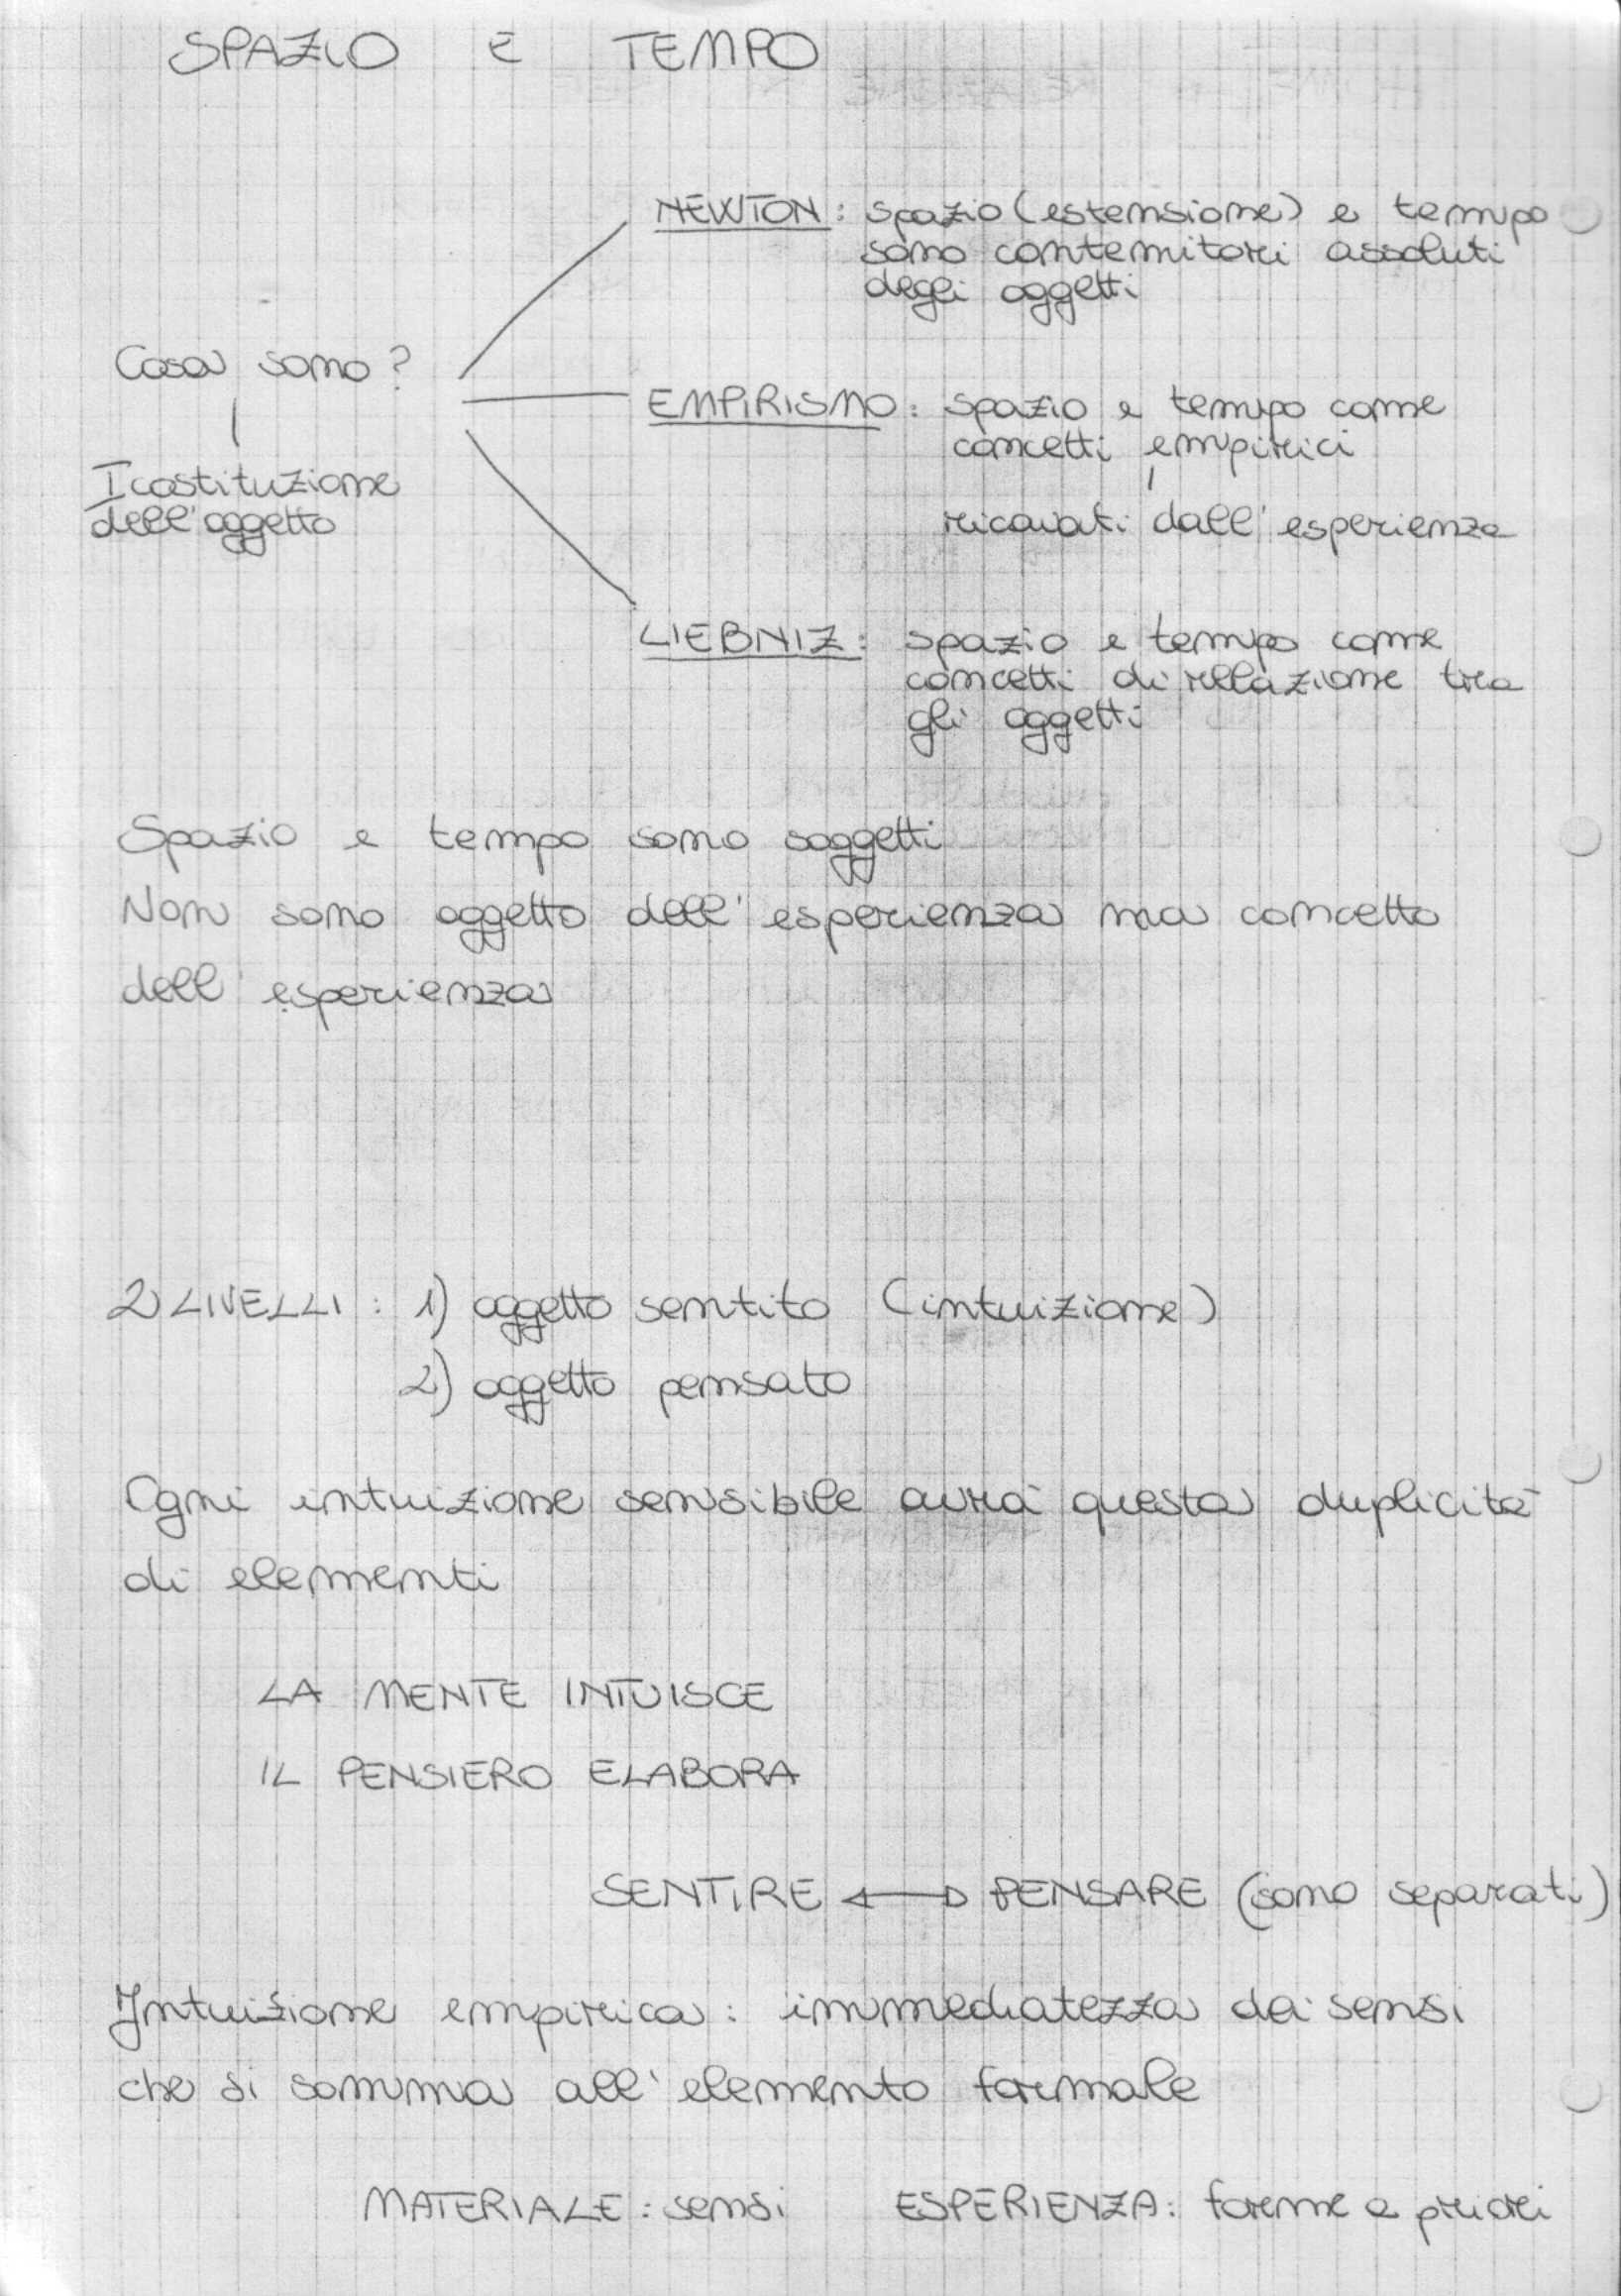 SPAZIO E TEMPO
NEWTON: spazio (estensione) e tempo
sono contenitori assoluti
degli oggetti
Cosa sono?
I costituzione
dell'oggetto
EMPIRISMO: spazio e tempo come
concetti empirici
ricavati dall'esperienza
LIEBNIZ: spazio e tempo come
concetti di relazione tra
gli oggetti
Spazio e tempo sono soggetti
Non sono oggetto dell'esperienza ma concetto
dell'esperienza
2 LIVELLI: 1) oggetto sentito (intuizione)
2) oggetto pensato
Ogni intuizione sensibile avrà questa duplicità
di elementi
LA MENTE INTUISCE
IL PENSIERO ELABORA
SENTIRE ↔ PENSARE (sono separati)
Intuizione empirica: immediatezza dei sensi
che si somma all'elemento formale
MATERIALE: sensi ESPERIENZA: forme a priori